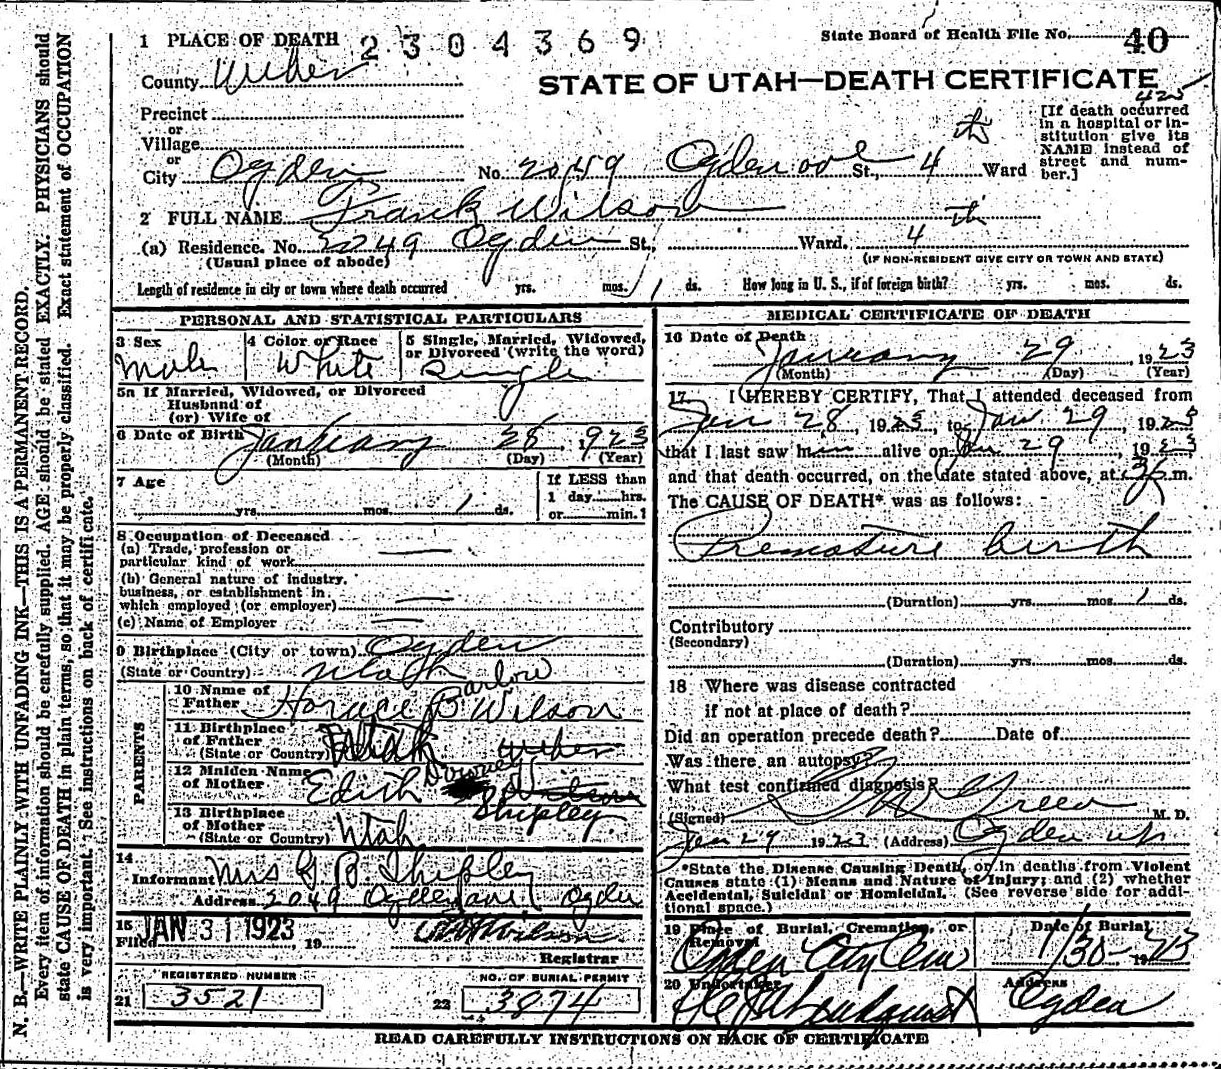 1 PLACE OF DEATH 2304369
State Board of Health File No. 40
County Weber
STATE OF UTAH—DEATH CERTIFICATE
425
Precinct
or
Village
or
City Ogden No. 2049 Ogden ave St., 4th Ward
[If death occurred
in a hospital or in-
stitution give its
NAME instead of
street and num-
ber.]
2 FULL NAME Frank Wilson
(a) Residence. No. 2249 Ogden St., Ward. 4th
(Usual place of abode) (IF NON-RESIDENT GIVE CITY OR TOWN AND STATE)
Length of residence in city or town where death occurred yrs. mos. 1 ds. How long in U. S., if of foreign birth? yrs. mos. ds.
PERSONAL AND STATISTICAL PARTICULARS
3 Sex
Male
4 Color or Race
White
5 Single, Married, Widowed,
or Divorced (write the word)
Single
5a If Married, Widowed, or Divorced
Husband of
(or) Wife of
6 Date of Birth January 28, 1923
(Month) (Day) (Year)
7 Age
yrs. mos. 1 ds.
If LESS than
1 day hrs.
or min.?
8 Occupation of Deceased
(a) Trade, profession or
particular kind of work
(b) General nature of industry,
business, or establishment in
which employed (or employer)
(c) Name of Employer
9 Birthplace (City or town) Ogden
(State or Country) Utah
PARENTS
10 Name of
Father Horace Barlow Wilson
11 Birthplace
of Father
(State or Country) Utah Weber
12 Maiden Name
of Mother Edith Downey Wilson
Shipley
13 Birthplace
of Mother
(State or Country) Utah
14
Informant Mrs G B Shipley
Address 2049 Ogden ave Ogden
15
Filed JAN 31 1923 19 Wilson
Registrar
REGISTERED NUMBER
21 3521
NO. OF BURIAL PERMIT
22 3874
MEDICAL CERTIFICATE OF DEATH
16 Date of Death
January 29, 1923
(Month) (Day) (Year)
17 I HEREBY CERTIFY, That I attended deceased from
Jan 28, 1923, to Jan 29, 1923
that I last saw him alive on Jan 29, 1923
and that death occurred, on the date stated above, at 3 p m.
The CAUSE OF DEATH* was as follows:
Premature birth
(Duration) yrs. mos. 1 ds.
Contributory
(Secondary)
(Duration) yrs. mos. ds.
18 Where was disease contracted
if not at place of death?
Did an operation precede death? Date of
Was there an autopsy?
What test confirmed diagnosis?
(Signed) Green M. D.
Jan 29 1923 (Address) Ogden ut
*State the Disease Causing Death, or in deaths from Violent
Causes state (1) Means and Nature of Injury; and (2) whether
Accidental, Suicidal or Homicidal. (See reverse side for addi-
tional space.)
19 Place of Burial, Cremation, or
Removal
Ogden City Cem
Date of Burial
1/30-1923
20 Undertaker
Lindquist
Address
Ogden
READ CAREFULLY INSTRUCTIONS ON BACK OF CERTIFICATE
N. B.—WRITE PLAINLY WITH UNFADING INK—THIS IS A PERMANENT RECORD.
Every item of information should be carefully supplied. AGE should be stated EXACTLY. PHYSICIANS should
state CAUSE OF DEATH in plain terms, so that it may be properly classified. Exact statement of OCCUPATION
is very important. See instructions on back of certificate.